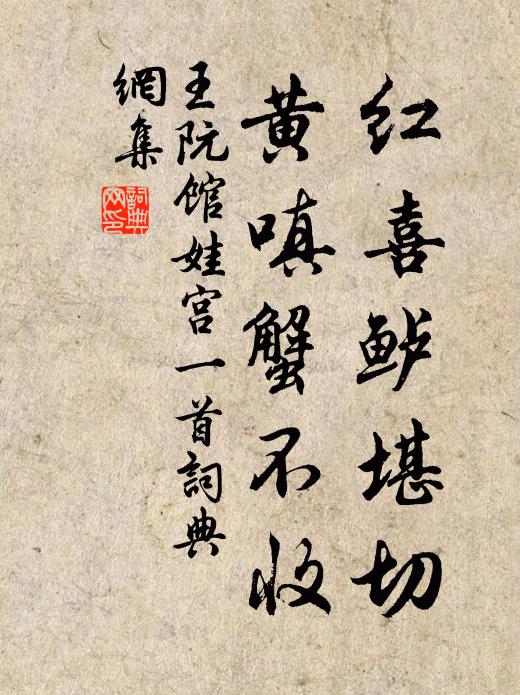 红喜鲈堪切
黄嗔蟹不收
王阮馆娃宫一首詞典
網集
詞典
网印